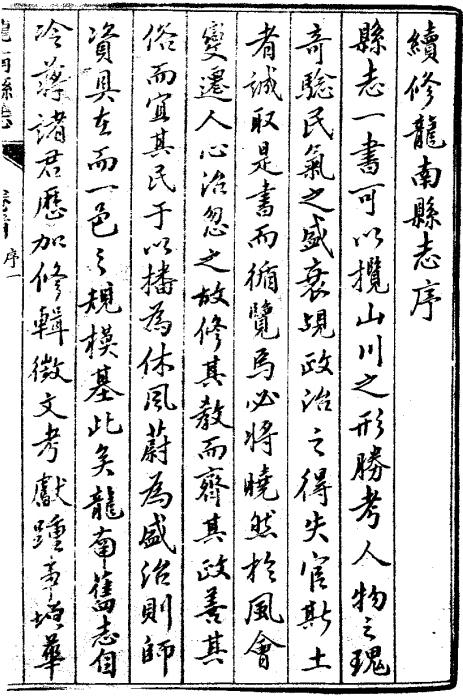 續修龍南縣志序
縣志一書可以攬山川之形勝考人物之瑰
奇驗民氣之盛衰覘政治之得失官斯土
者誠取是書而循覽焉必將曉然於風會
變遷人心治忽之故修其教而齊其政善其
俗而宜其民于以播為休風蔚為盛治則師
資具在而一邑之規模基此矣龍南舊志自
冷薛諸君歷加修輯徵文考獻踵事增華
龍南縣志
序一